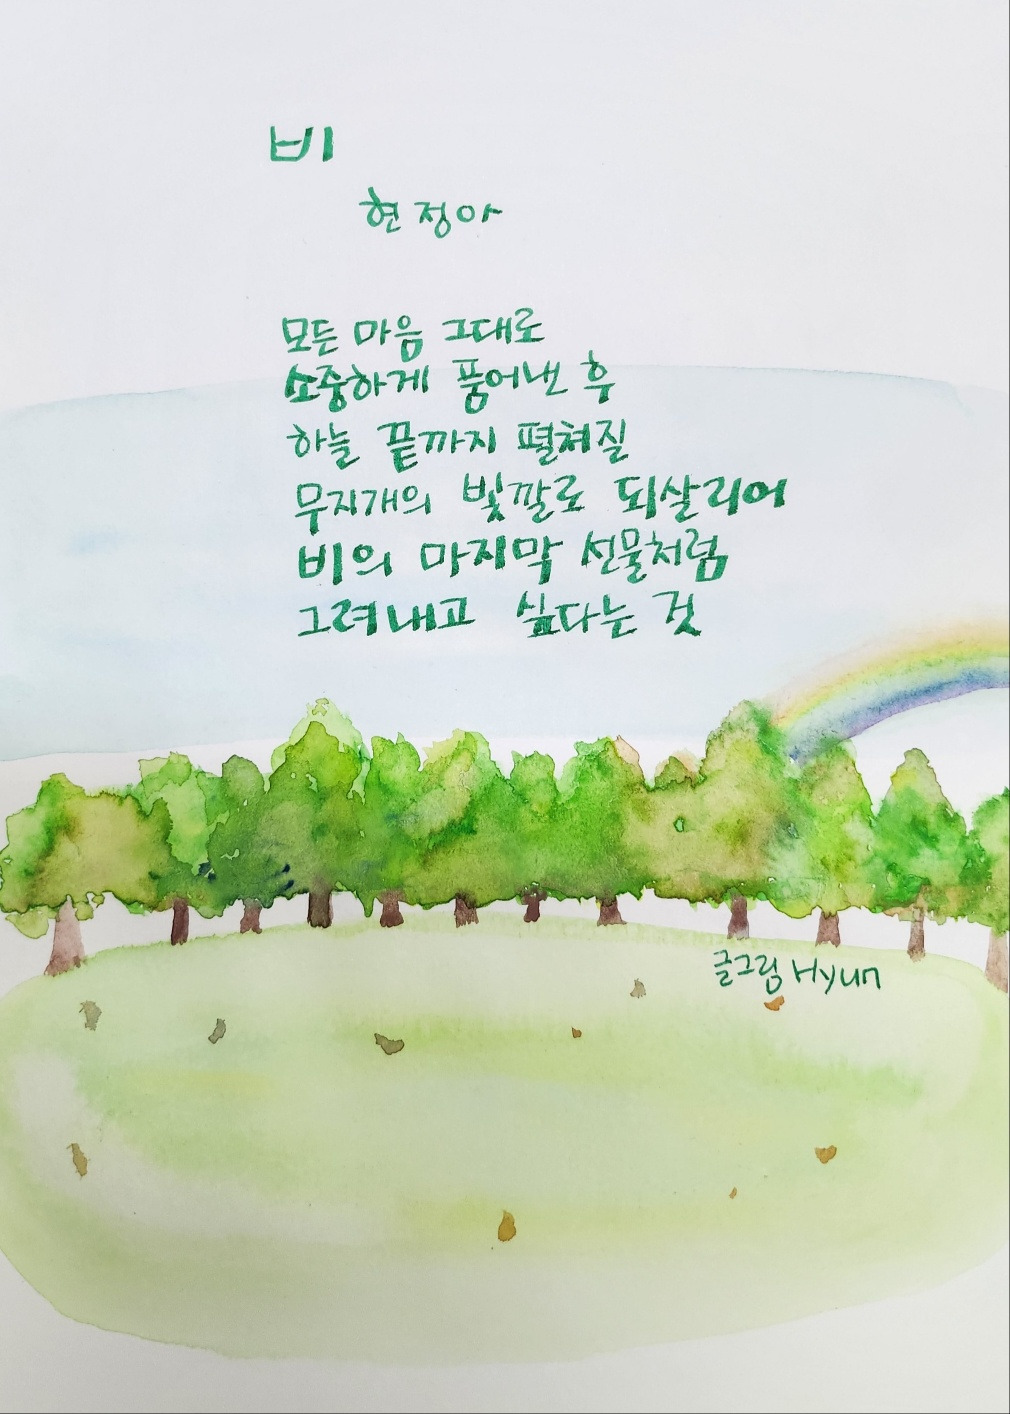 비
현정아
모든 마음 그대로
소중하게 품어낸 후
하늘 끝까지 펼쳐질
무지개의 빛깔로 되살리어
비의 마지막 선물처럼
그려내고 싶다는 것
글그림 Hyun